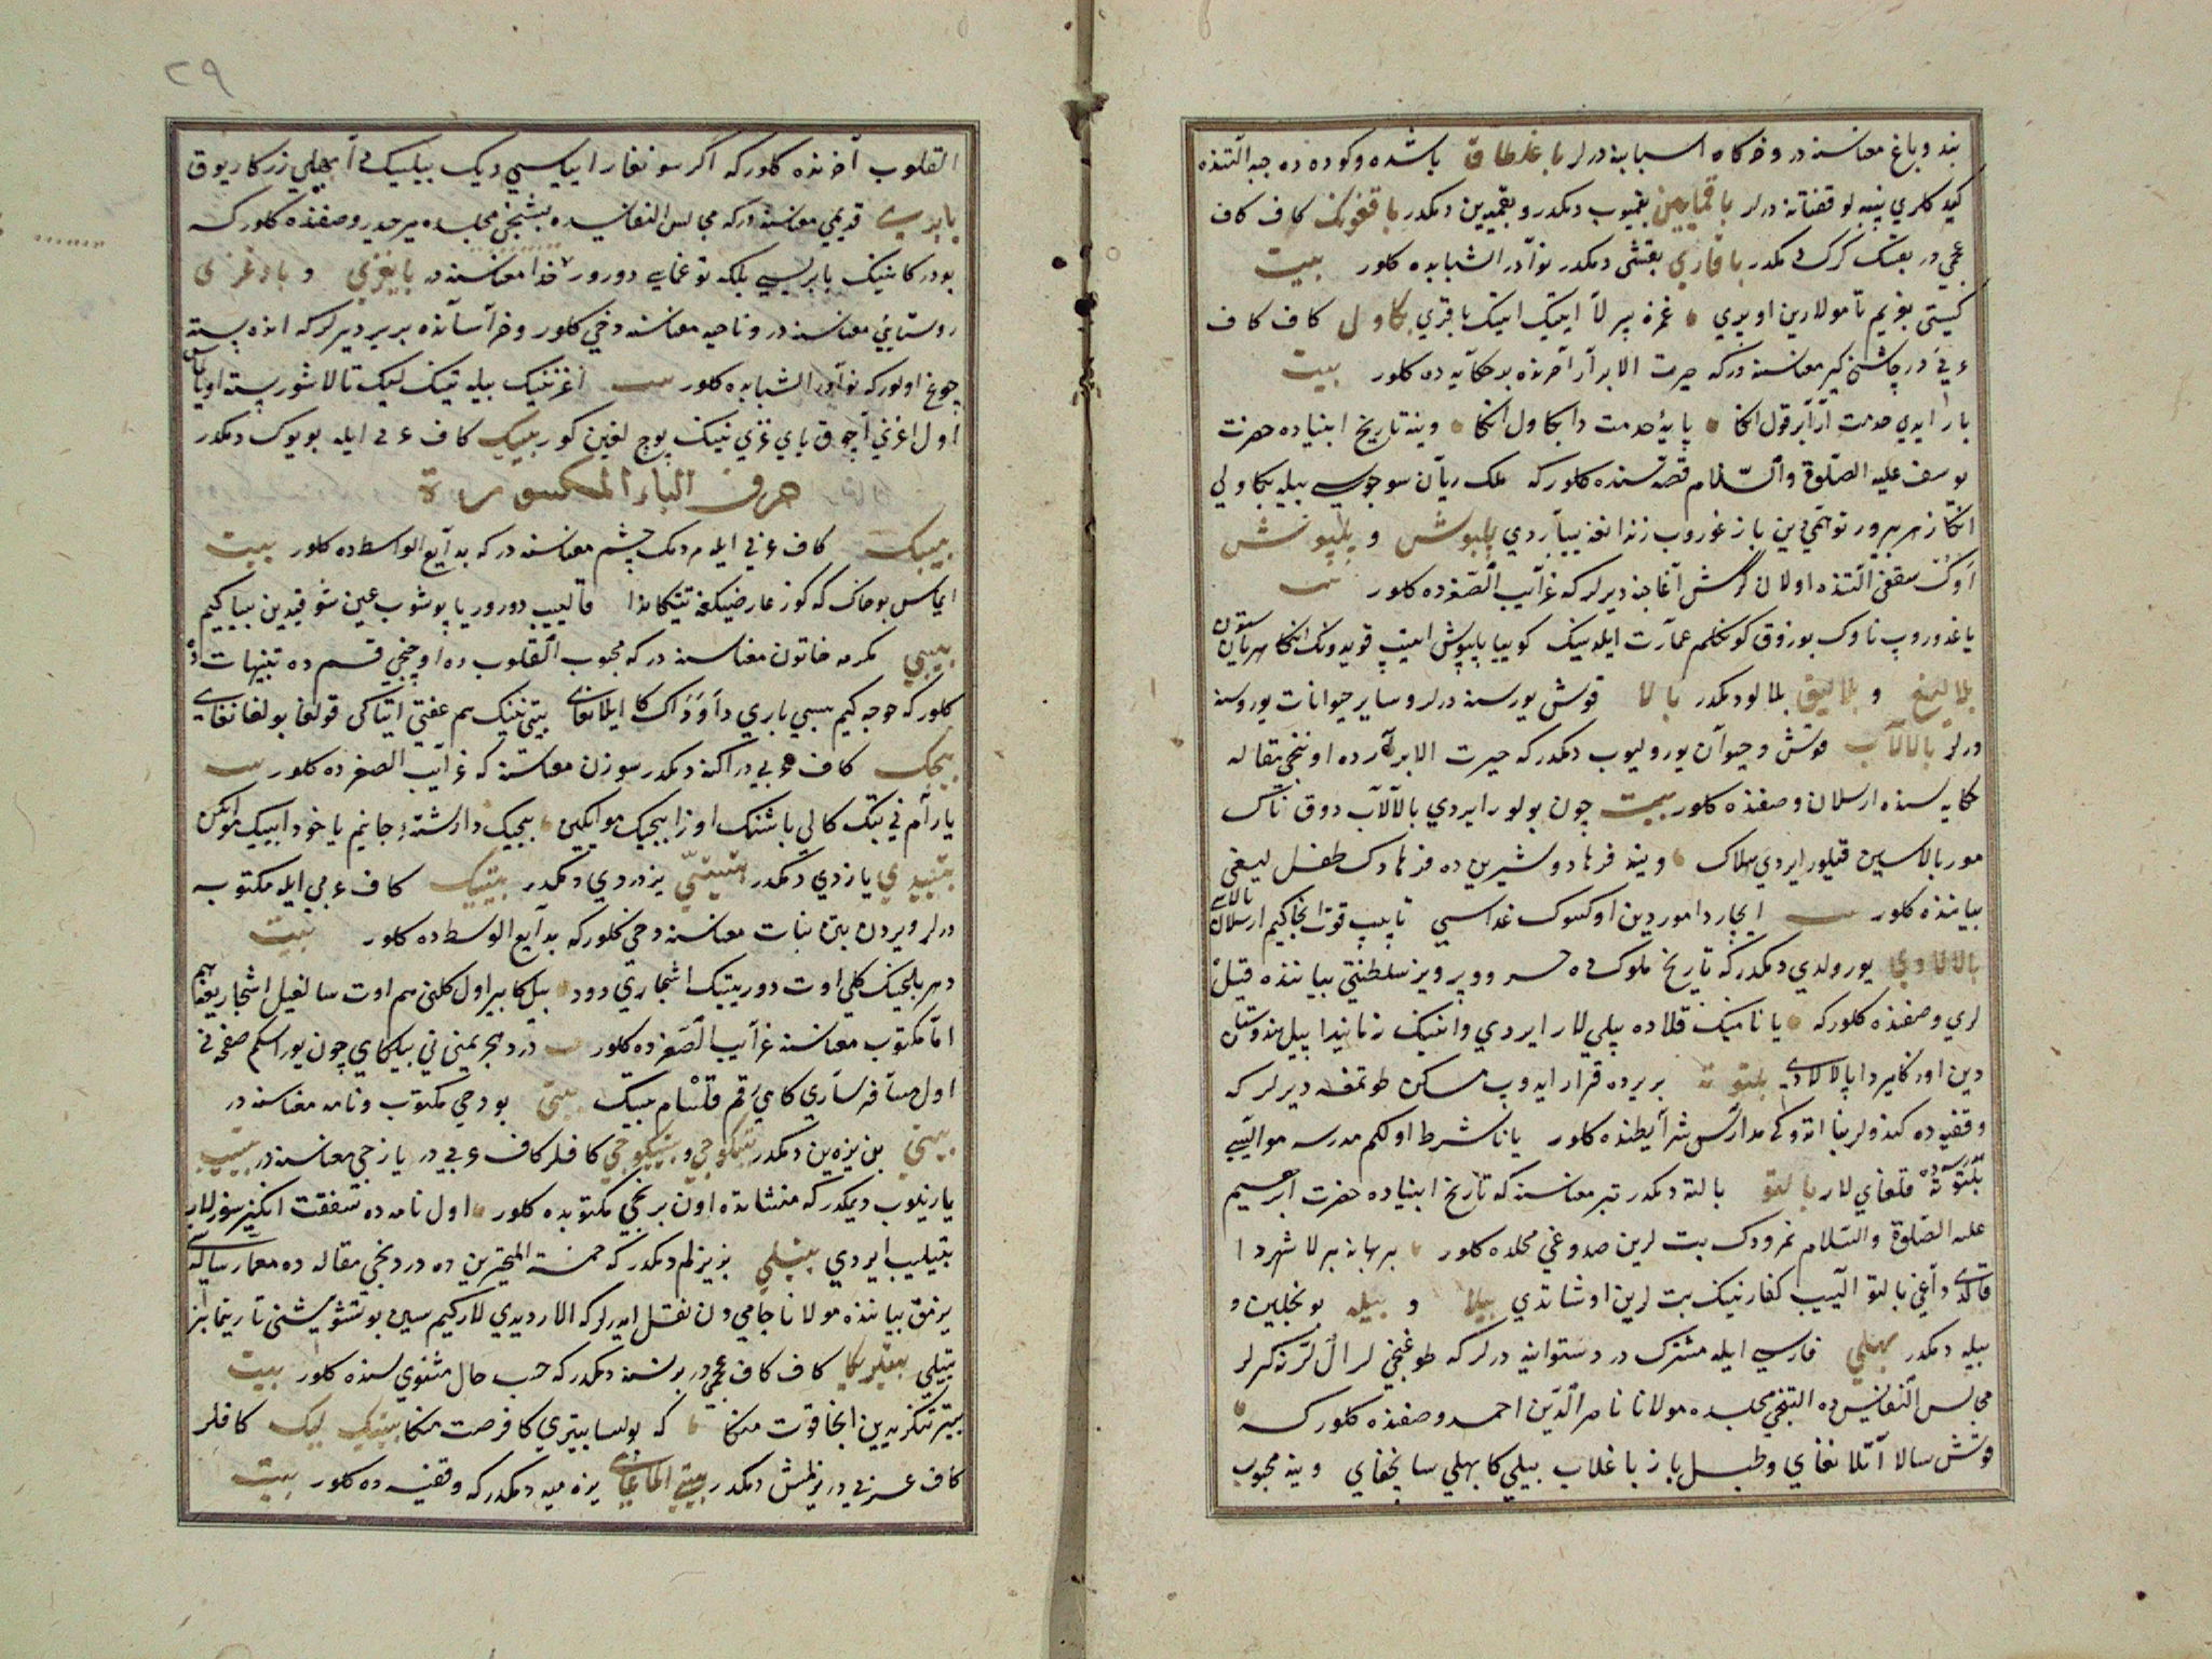 بند و باغ معناسنه در و خرگاه اسبابنه درلر باغلطاق باشده و كوده ده جبه التنده
كيدكلری پنبه لو قفتانه درلر باقمايين بقميوب ديمكدر و بقميدين ديمكدر باقغونك كاف كاف
عجمی در بقسك كرك ديمكدر باقاری بقشی ديمكدر نوادر الشبابده كلور بيت
كيتی بغريم تامولارين اويری غمزه بيرلا ايتيك ايتيك باقری بكاول كاف كاف
عربی در چاشنی كير معناسنه در كه حيرت الابرار آخرنده بر حكايه ده كلور بيت
بار ايدی خدمت ارا بر قول انكا پايهٔ خدمت دا بكاول انكا وينه تاريخ انبياده حضرت
يوسف عليه الصلوة والسلام قصه سنده كلور كه ملك ريان سوجيسی بيله بكاولی
انكا زهر بيرور توهمی دين باز غوروب زندانغه يبارردی پلپوش و پيلپوش
اوك سقفی التنده اولان كرش آغاجنه ديرلر كه غرايب الصغرده كلور بيت
ياغدوروپ ناوك بوزوق كونكلم عمارت ايلدينك كوييا پلپوش ايتيپ قويدونك انكا هر يان ستون
بلاليغ و بلاليق بلالو ديمكدر بالا قوش يورسنه درلر و ساير حيوانات يوروسنه
درلر بالالاب قوش و حيوان يورولیوب ديمكدر كه حيرت الابرارده اوننجی مقاله
حكايه سنده ارسلان وصفنده كلور بيت چون بولور ايردی بالالاب دوق ناك
مور بالاسين قيلور ايردی هلاك وينه فرهاد و شيرين ده فرهادك طفل ليغی
بياننده كلور بيت ايچاردا موردين اوكسوك غداسی تاپيپ قوت انجا كيم ارسلان بالاسی
بالالادی يورولدی ديمكدر كه تاريخ ملوك ده خسرو و پرويز سلطنتی بياننده فيل
لری وصفنده كلور كه يانا مينك قلاده پيلی لار ايردی و انينك زمانيدا پيل هندوستان
دين اوزكا يردا بالالادی بلتوته بر يرده قرار ايدوب مسكن طوتمغه ديرلر كه
وقفيه ده كندولر بنا اتدوكی مدارس شرايطنده كلور يانا شرط اولكم مدرسه مواليسی
مدرسه ده بلتوته قلغای لار بالتو بالته ديمكدر تبر معناسنه كه تاريخ انبياده حضرت ابراهيم
عليه الصلوة والسلام نمرودك بت لرين صدوغی محلده كلور بر بهانه بيرلا شهردا
قالدی داغی بالتو اليب كفارنينك بت لرين اوشاتدی بيلا و بيله بونجلين و
بيله ديمكدر بهلی فارسی ايله مشترك در دستوانه درلر كه طوغنجی لر ال لرنه كرلر
مجالس النفايس ده التنجی مجلسده مولانا ناصر الدين احمد وصفنده كلور كه
قوش سالا آتلانغای و طبل باز باغلاب بيلی كا بهلی سانجغای وينه محبوب
٢٩
القلوب آخرنده كلور كه اكر سونغار ايياسی ديك بيليك لی آيلی زركار يوق
بابری قديمی معناسنه در كه مجالس النفايسده بشنجی مجلسده مير حيدر وصفنده كلور كه
بو دركانينك بابریسی بلكه توغمایی دورور خدا معناسنه در بايغزی و بادغزی
روستايی معناسنه در و ناحيه معناسنه دخی كلور و خراسانده بر يردر لر كه انده پسته
چوغ اولور كه نوادر الشبابده كلور بيت اغزينك بيله تينك ليك تالاشور پسته اوياتسیز
اول اغزنی آچوق بای غزی نينك پوچ لغين كور بييك كاف عربی ايله بويوك ديمكدر
حرف الباء المكسورة
بيبك كاف عربی ايله مردمك چشم معناسنه در كه بدايع الوسطده كلور بيت
ايماس بو خاك كه كوز عارضينكغه تيككاندا قاليب دورور ياپوشوب عين شوقيدين بيباكيم
بيبی مكرمه خاتون معناسنه در كه محبوب القلوب ده اوچنجی قسم ده تنبيهات ده
كلور كه خوجه كيم بيبی باری دا اوزاك كا ايلانغای بيبی نينك هم عفتی اتياكی قولغا بولغانغای
بيجك كاف عربی در اكنه ديمكدر سوزن معناسنه كه غرايب الصغرده كلور بيت
يارام نی تيك كالی باشتنك اوزا بيجيك مو ايكين بيجيك دا رشتهٔ جانيم ياخود ايپيك مو ايكين
بتيدی يازدی ديمكدر بتيتی يزدردی ديمكدر بيتيك كاف عربی ايله مكتوبه
درلر ويردن بتن نبات معناسنه دخی كلور كه بدايع الوسطده كلور بيت
دهر باغينك كلی اوت دور بيتيك اشجاری دود بيل كا بير اول كلنی هم اوت سالغيل اشجاريغا هم
اما مكتوب معناسنه غرايب الصغرده كلور بيت درد هجريمنی نی بيلكای چون يوراكم صفحه نی
اول مسافر ساری كامی رقم قلسام بيتيك بيتی بو دخی مكتوب و نامه معناسنه در
بيتی بن يزه ين ديمكدر بتكوجی و بيتيكوجی كافلر كاف عربی در يازجی معناسنه در بيتيب
يازيلوب ديمكدر كه منشاتده اون برنجی مكتوبده كلور اول نامه ده شفقت انكيز سوزلار
بتيليب ايردی بيتيلی بز يزلم ديمكدر كه خمسة المتحيرين ده دردنجی مقاله ده معما رساله سی
يزمق بياننده مولانا جامی دن نقل ايدرلر كه الار ديدی لار كيم سين بوتشويشنی تارتما بز
بتيلی بيتيلوركا كاف كاف عجمی در برنسنه ديمكدر كه حسب حال مثنوی سنده كلور بيت
بيتير تنكريدين انجا قوت منكا كه بولسا بيتريكا فرصت منكا بيتيك ليك كافلر
كاف عربی در يزلمش ديمكدر بيتی الماغای يزه ميه ديمكدر كه وقفيه ده كلور بيت